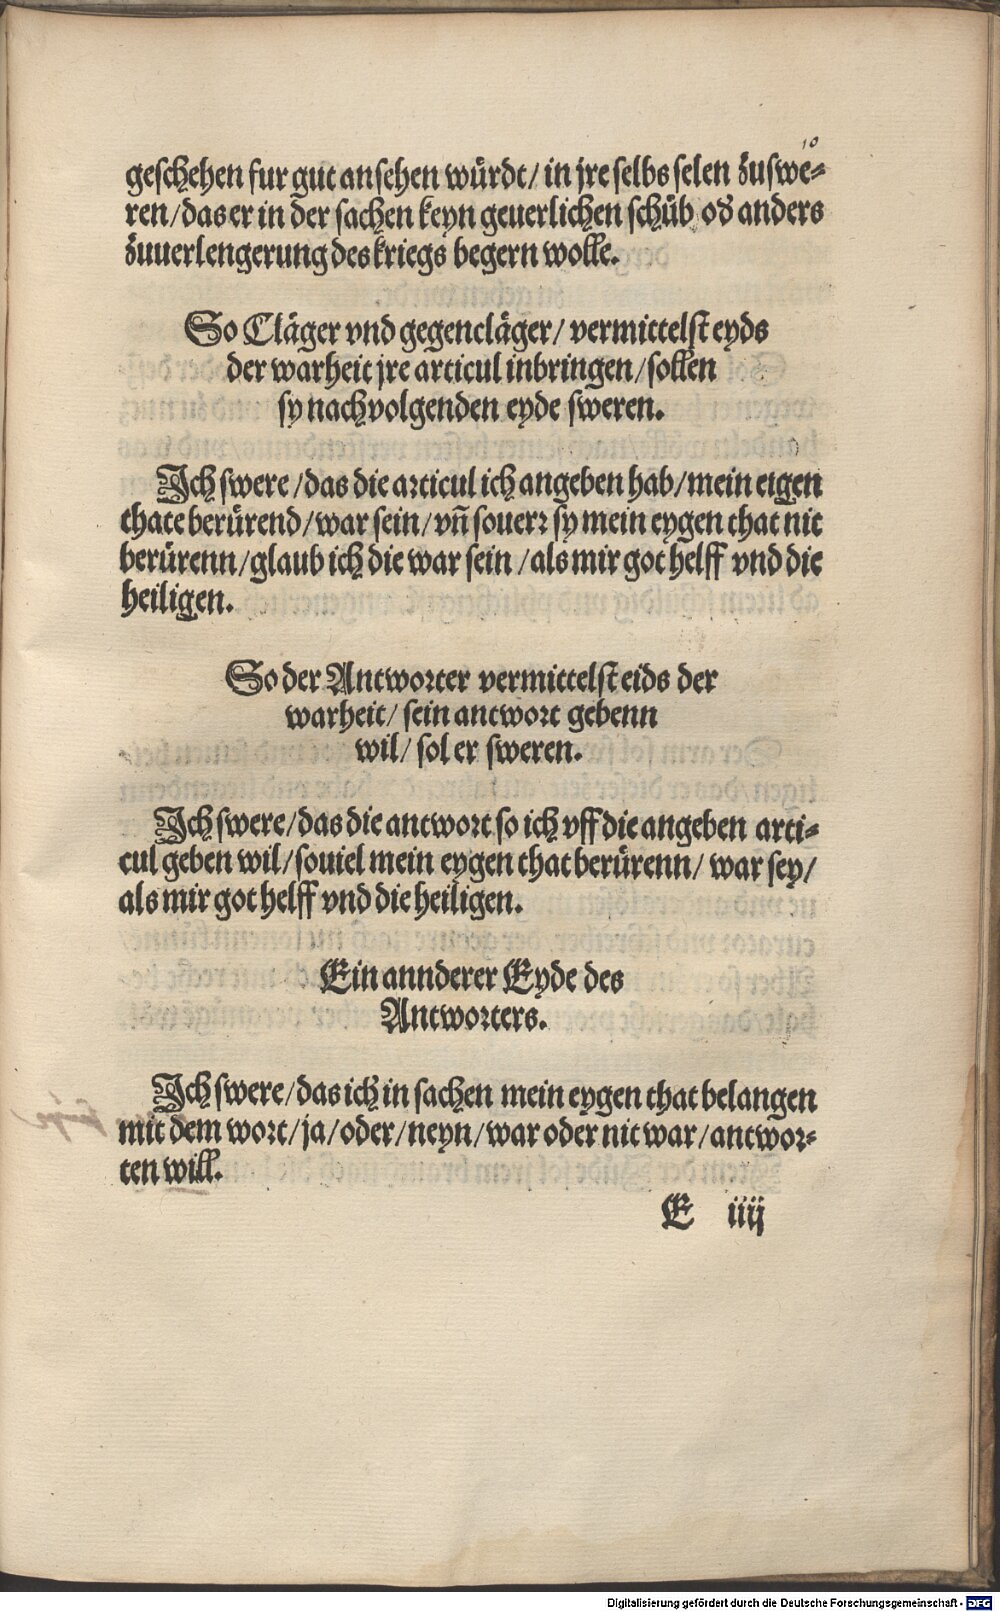 10
geschehen fur gut ansehen würdt/ in jre selbs selen zuswe-
ren/das er in der sachen keyn geuerlichen schüb od anders
zuuerlengerung des kriegs begern wolle.
So Cläger vnd gegencläger/ vermittelst eyds
der warheit jre articul inbringen/sollen
sy nachvolgenden eyde sweren.
Ich swere/das die articul ich angeben hab/mein eigen
thate berürend/war sein/vn̄ souerr sy mein eygen that nit
berürenn/glaub ich die war sein/als mir got helff vnd die
heiligen.
So der Antworter vermittelst eids der
warheit/ sein antwort gebenn
wil/ sol er sweren.
Ich swere/das die antwort so ich vff die angeben arti-
cul geben wil/souiel mein eygen that berürenn/ war sey/
als mir got helff vnd die heiligen.
Ein annderer Eyde des
Antworters.
Ich swere/das ich in sachen mein eygen that belangen
mit dem wort/ja/oder/neyn/war oder nit war/antwor-
ten will.
E iiij
Digitalisierung gefördert durch die Deutsche Forschungsgemeinschaft - DFG